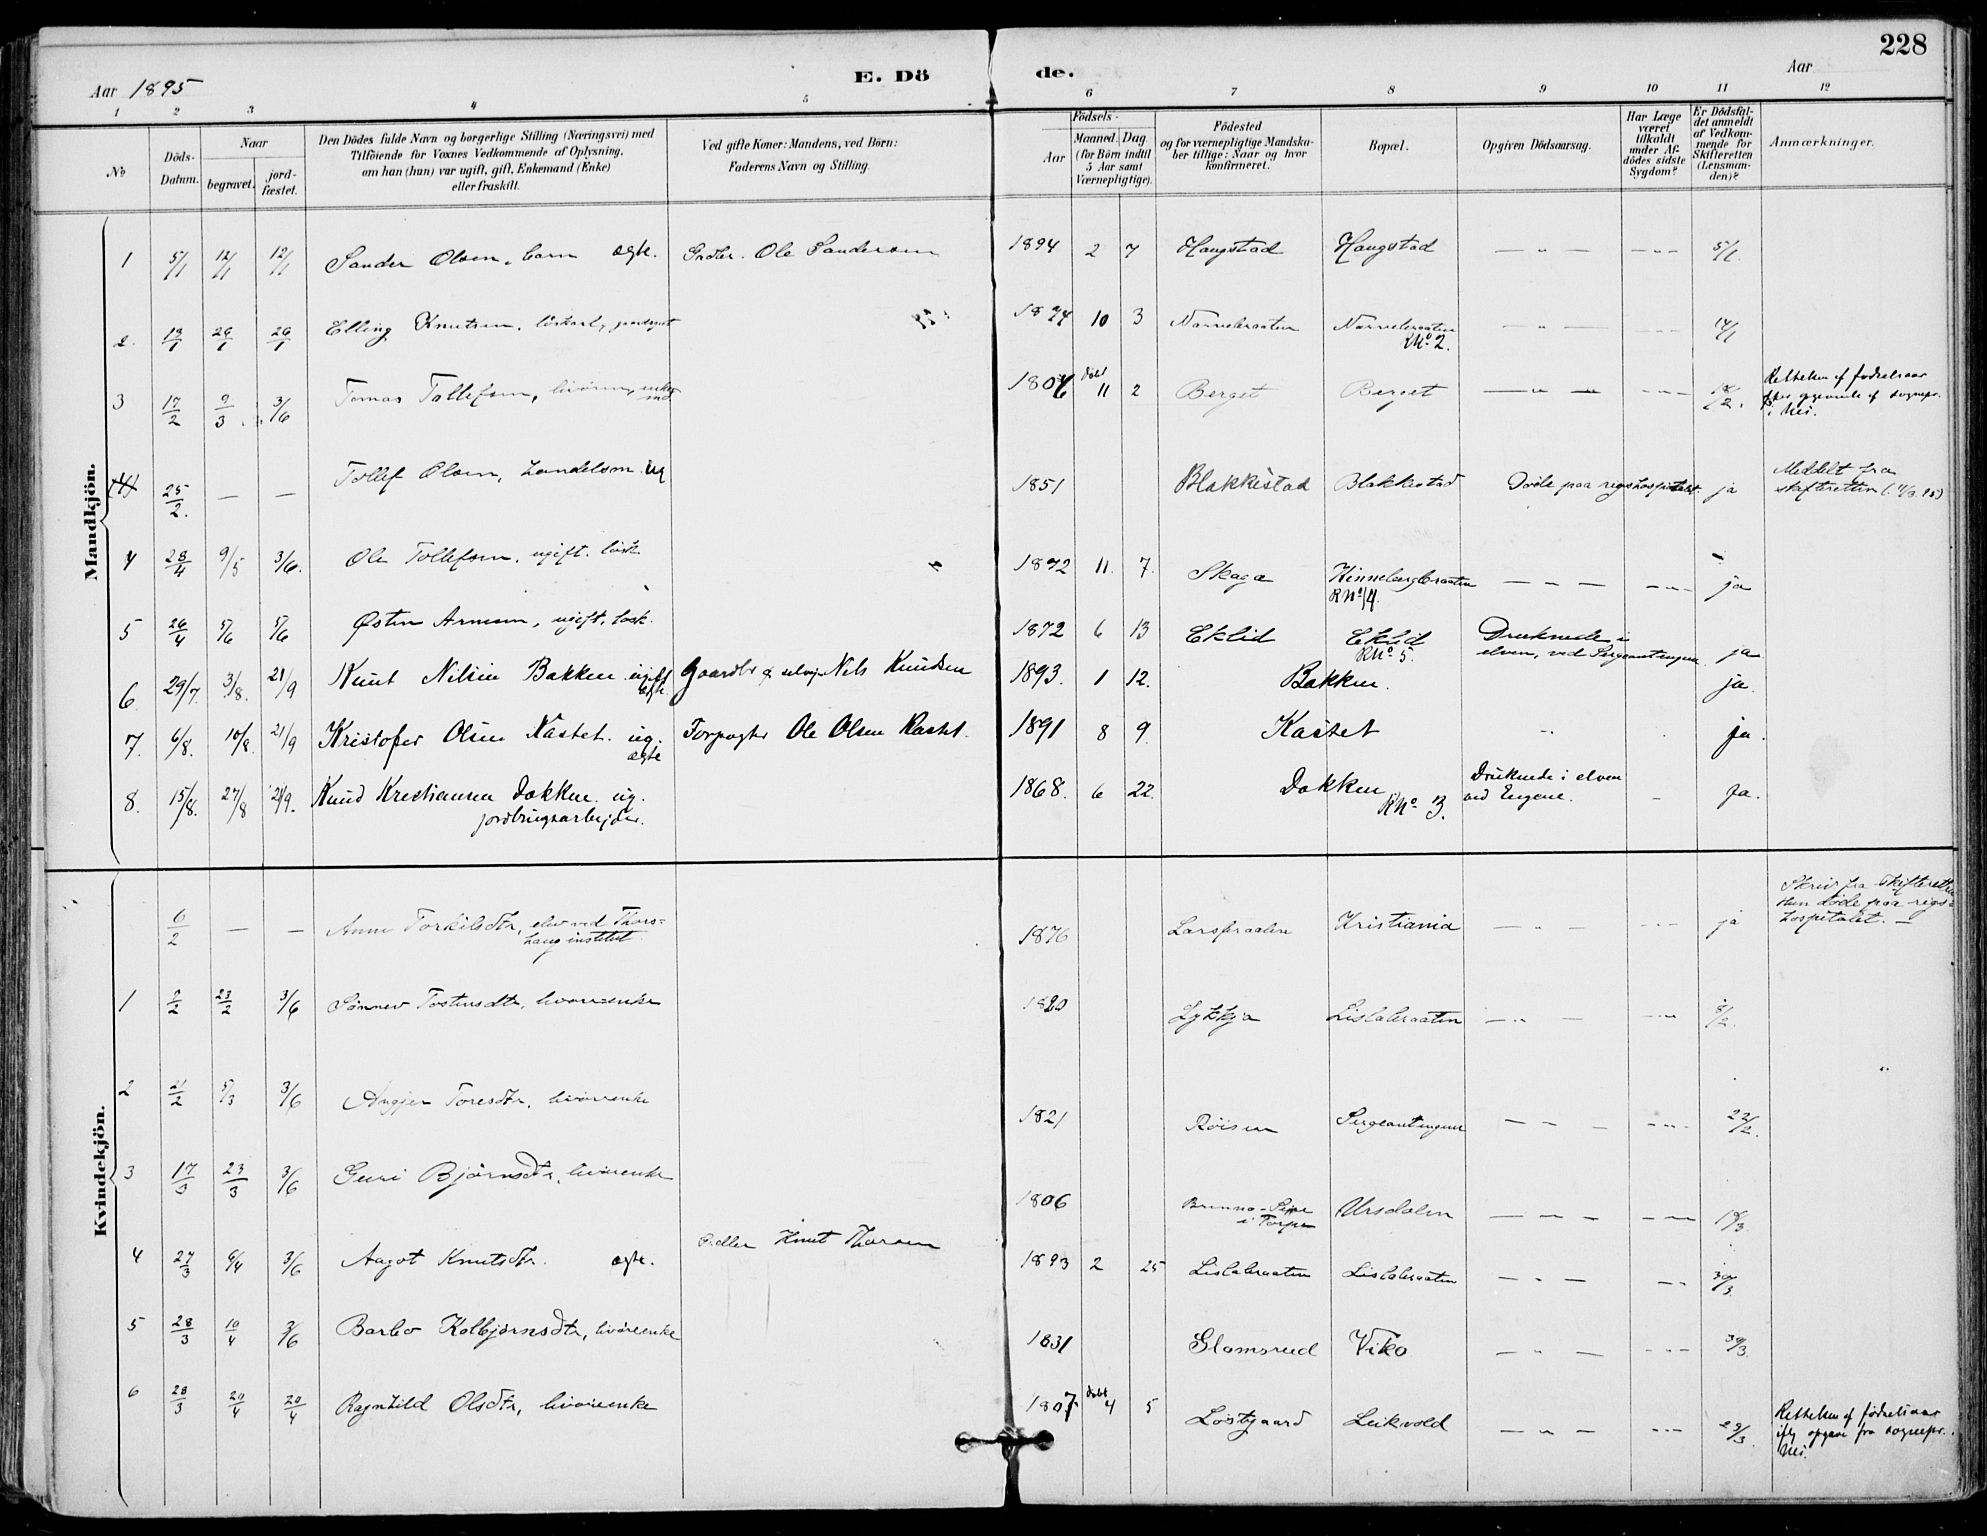 228
Aar 1895
E. Dö de.
Aar
1 2 3 4 5 6 7 8 9 10 11 12
No
Döds-Datum.
Naar
begravet.
jord-fæstet.
Den Dödes fulde Navn og borgerlige Stilling (Næringsvei) med
Tilföiende for Voxnes Vedkommende af Oplysning,
om han (hun) var ugift, gift, Enkemand (Enke)
eller fraskilt.
Ved gifte Koner: Mandens, ved Börn:
Faderens Navn og Stilling.
Födsels-
Aar
Maaned. Dag
(for Börn indtil
5 Aar samt
Værnepligtige).
Födested
og for værnepligtige Mandska-
ber tillige: Naar og hvor
konfirmeret.
Bopæl.
Opgiven Dödsaarsag.
Har Læge
været
tilkaldt
under Af-
dödes sidste
Sygdom?
Er Dödsfal-
det anmeldt
af Vedkom-
mende for
Skifteretten
(Lensman-
den)?
Anmærkninger.
Mandkjön.
1 5/1 12/1 12/1 Sander Olsen, barn ægte. Ole Sandersen 1894 2 7 Haugstad Haugstad — " — — " — 5/1
2. 13/1 29/1 29/1 Elling Knutsen, 10 3 Narvebraaten Narvebraaten — " — 14/1
RNo 2.
3 17/2 9/3 3/6 Tomas Tollefsen, døbt 11 2 Berget Berget — " — 18/2. Rettelsen af fødselsaar
i Nes.
(4) 25/2. — — Tollef Olsen, ug 1851 Blakkestad Blakkestad Døde paa rigshospitalet. ja Meddelt fra
skifteretten
4 28/4 9/5 3/6. Ole Tollefsen, ugift. løsk. 1892 11. 7. Skaga — — — — " — ja
RNo 14.
5 26/4 5/6 5/6 Østen Arnesen, ugift, løsk. 1872 6 13 Eklid Eklid Druknede i
RNo 5. elven, ved Sergeantengene ja
6. 29/7. 3/8. 21/9 Knut Nilsen Bakken ugift Gaardbr & selvej Nels Knudsen 1893. 1 12. Bakken. ja.
ægte
7. 6/8. 10/8. 21/9 Kristofer Olsen Kastet. ug. Ole Olsen Kastet. 1891 8 9. Kastet ja.
ægte
8. 15/8. 27/8 21/9. Knud Kristiansen Dokken. ug. 1868. 6 22. Dokken Druknede i elven
jordbrugsarbejder. RNo 3. ved Engene. ja.
Kvindekjön.
6/2 — — Anne Torkilsdtr, elev ved
institut. 1876 Larsbraaten Kristiania — " — — " — ja Skriv fra skifteretten
Hun døde paa rigs-
hospitalet. —
1 2/2 23/2 3/6 Sønnev Tostensdtr, livøreenke 1820 Lykkja Lislebraaten — " — — " — 8/2.
2 21/2 5/3 3/6 Angjer Toresdtr, livøreenke 1821 Røisen Sergeantengene — — — — " — 22/2.
3 17/3 23/3 3/6 Guri Bjørnsdtr, livøreenke 1806 Ursdalen — — — — " — 18/3.
i Torpe
4 27/3 6/4 3/6 Aagot Knutsdtr. ægte. Knut Thorsen 1893 2 25 Lislebraaten Lislebraaten — " — — " — 30/3.
5 28/3 10/4 3/6 Barbo Kolbjørnsdtr, livøreenke 1831 Glomsrud Viko — " — — " — 30/3.
6 28/3 20/4 20/4 Ragnhild Olsdtr, livøreenke 1807 døbt 4 5 Løstgaard Leikvold — " — — " — 29/3. Rettelsen af fødselsaar
iflg opgave fra sognepr.
Nes.